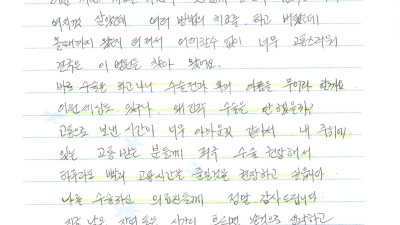 여지껏 살았는데 여러 방법의 치료를 하고 버텼는데
올때까지 왔던지 어쩔수 없이 너무 고통스러워
결국은 이 병원을 찾아 왔어요.
바로 수술을 하고나니 수술전과 후의 아픔을 무어라 할까요
이런 세상도 있구나, 왜 진작 수술을 안 했을까?
고통으로 보낸 시간이 너무 아까운것 같아서 내 주위에
있는 고통받는 분들께 적극 수술 권합해서
하루라도 빨리 고통시간을 줄일것을 권장하고 싶습니다
나를 수술하신 의료진들께 정말 감사드립니다
시간이 흐르면